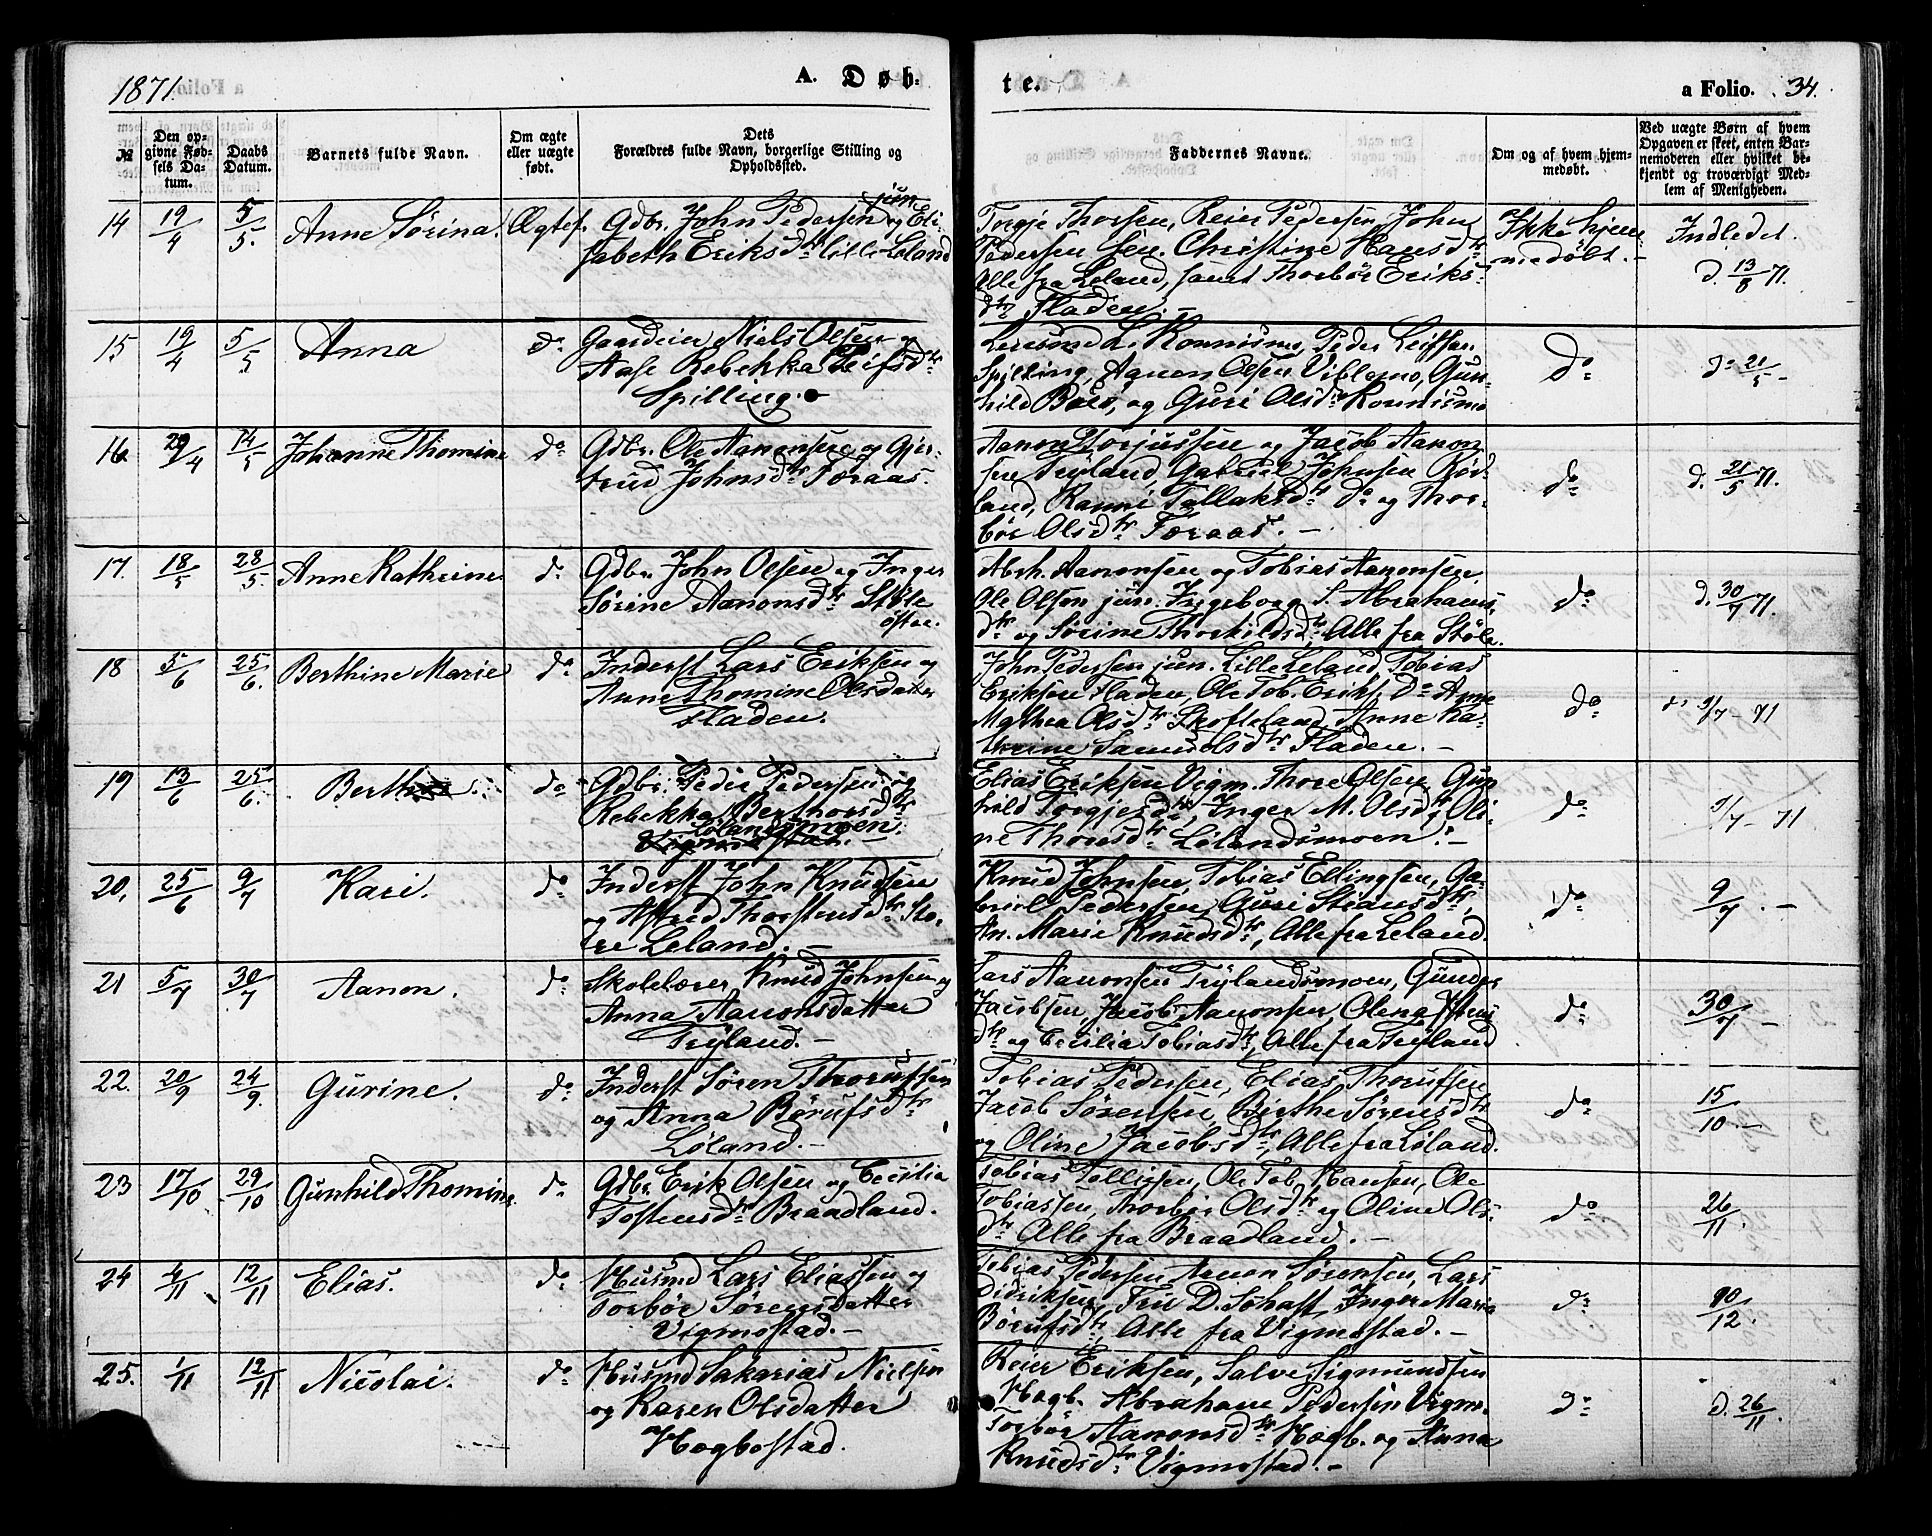 1871.
A. Døb-
te.
a Folio. 34.
№
Den opgivne Fødsels Datum.
Daabs Datum.
Barnets fulde Navn.
Om ægte eller uægte født.
Dets Forældres fulde Navn, borgerlige Stilling og Opholdssted.
Faddernes Navne.
Om og af hvem hjemmedøbt.
Ved uægte Børn af hvem Opgaven er skeet, enten Barnemoderen eller hvilket bekjendt og troværdigt Medlem af Menigheden.
14 19/4 5/5. Anne Sørina. Ægtef. Gdbr. John Pedersen jun. og Eli-
sabeth Eriksdtr Lille Leland
Torgje Thorsen, Reier Pedersen, John
Pedersen sen. Christine Hansdtr
Alle fra Leland, samt Thorbør Eriks-
dtr Fladen. –
Ikke hjem-
medøbt. –
Indledet.
d. 13/8 71.
15 19/4 5/5. Anna do Gaardeier Niels Olsen og
Aase Rebekka Leifsdtr
Spilling.
Peder Leifsen
Spilling, Aanon Olsen Viblemo, Gun-
hild og Guri Olsdtr
do
do 21/5 –
16. 29/4 14/5 Johanne Thomine do Gdbr. Ole Aanonsen og Gjer-
trud Johnsdtr Foraas.
Aanon Torjussen og Jacob Aanon-
sen Tryland, Gabriel Johnsen Rød-
land, Ranni Tallaksdtr do og Thor-
bør Olsdtr Foraas. –
do
d. 21/5 71.
17. 18/5 28/5. Anne Kathrine do Gdbr. John Olsen og Inger
Sørine Aanonsdtr Støle
østre.
Abrh. Aanonsen og Tobias Aanonsen,
Ole Olsen jun. Ingeborg S. Abrahams-
dtr og Sørine Thorkildsdtr, Alle fra Støle.
do
d. 30/7 71.
18 5/6 25/6. Berthine Marie do Inderst Lars Eriksen og
Anne Thomine Olsdatter
Fladen.
John Pedersen jun. Lille Leland, Tobias
Eriksen Fladen, Ole Tob. Eriks. do Anne
Mathea Olsdtr Skofteland, Anne Ka-
thrine Samuelsdtr Fladen. –
do
do 9/7 – 71
19 13/6 25/6. Berthe do Gdbr. Peder Pedersen og
Rebekka Berthorsdtr
Lølandsmoen.
Elias Eriksen Vigm. Thore Olsen, Gun-
hild Torgjersdtr, Inger M. Olsdtr, Oli-
ne Thorsdtr Lølandsmoen. –
do
9/7 – 71
20. 25/6 9/7 Kari. do Inderst John Knudsen
og Astred Thorstensdtr Sto-
re Leland. –
Knud Johnsen, Tobias Ellingsen, Ga-
briel Pedersen, Guri Stiansdtr,
An. Marie Knudsdtr, Alle fra Leland.
do
9/7. –
21 5/7 30/7 Aanon. do Skolelærer Knud Johnsen og
Anna Aanonsdatter
Tryland. –
Lars Aanonsen Trylandsmoen, Gunder
Jacobsen, Jacob Aanonsen, Olena
dtr og Cecilia Tobiasdtr, Alle fra Tryland
do
30/7 –
22. 20/9 24/9. Gurine. do Inderst Søren Thorussen
og Anna Børufsdtr
Løland. –
Tobias Pedersen, Elias Thorufsen
Jacob Sørensen, Birthe Sørensdtr
og Oline Jacobsdtr, Alle fra Løland.
do
15/10. –
23 17/10 29/10 Gunhild Thomine. do Gdbr. Erik Olsen og Cecilia
Tostensdtr Braadland.
Tobias Tollissen, Ole Tob. Hansen, Ole
Tobiassen, Thorbør Olsdtr og Oline Ols-
dtr Alle fra Braadland. –
do
26/11.
24 4/11 12/11 Elias. do Husmd Lars Eliassen og
Torbør Sørensdatter
Vigmostad. –
Tobias Pedersen Aanon Sørensen, Lars
Didriksen, Inger Maria
Børufsdtr, Alle fra Vigmostad. –
do
10/12.
25. 1/11 12/11 Nicolai. do Husmd Sakarias Nielsen
og Karen Olsdatter
Høgbostad.
Reier Eriksen, Salve Sigmundsen
Høgb. Abraham Pedersen Vigm.
Torbør Aanonsdtr Høgb. og Anna
Knudsdtr Vigmostad. –
do
d. 26/11.